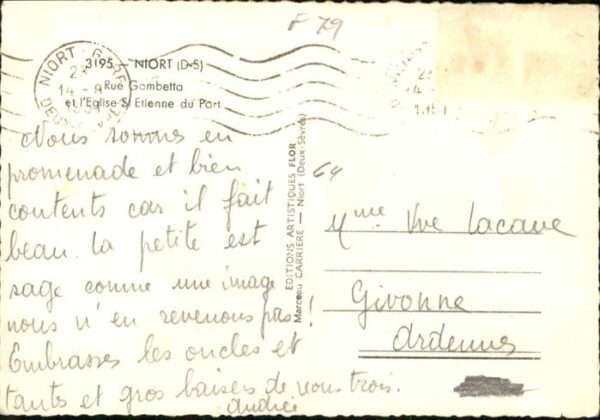 F 79
3195 — NIORT (D-S)
Rue Gambetta
et l'Eglise St Etienne du Port
NIORT GARE
Nous sommes en
promenade et bien
contents car il fait
beau. La petite est
sage comme une image
nous n'en revenons pas !
Embrasses les oncles et
tantes et gros baisers de nous trois.
Andrée
EDITIONS ARTISTIQUES FLOR
Marceau CARRIERE — Niort (Deux-Sèvres)
64
Mme Vve Lacave
Givonne
Ardennes